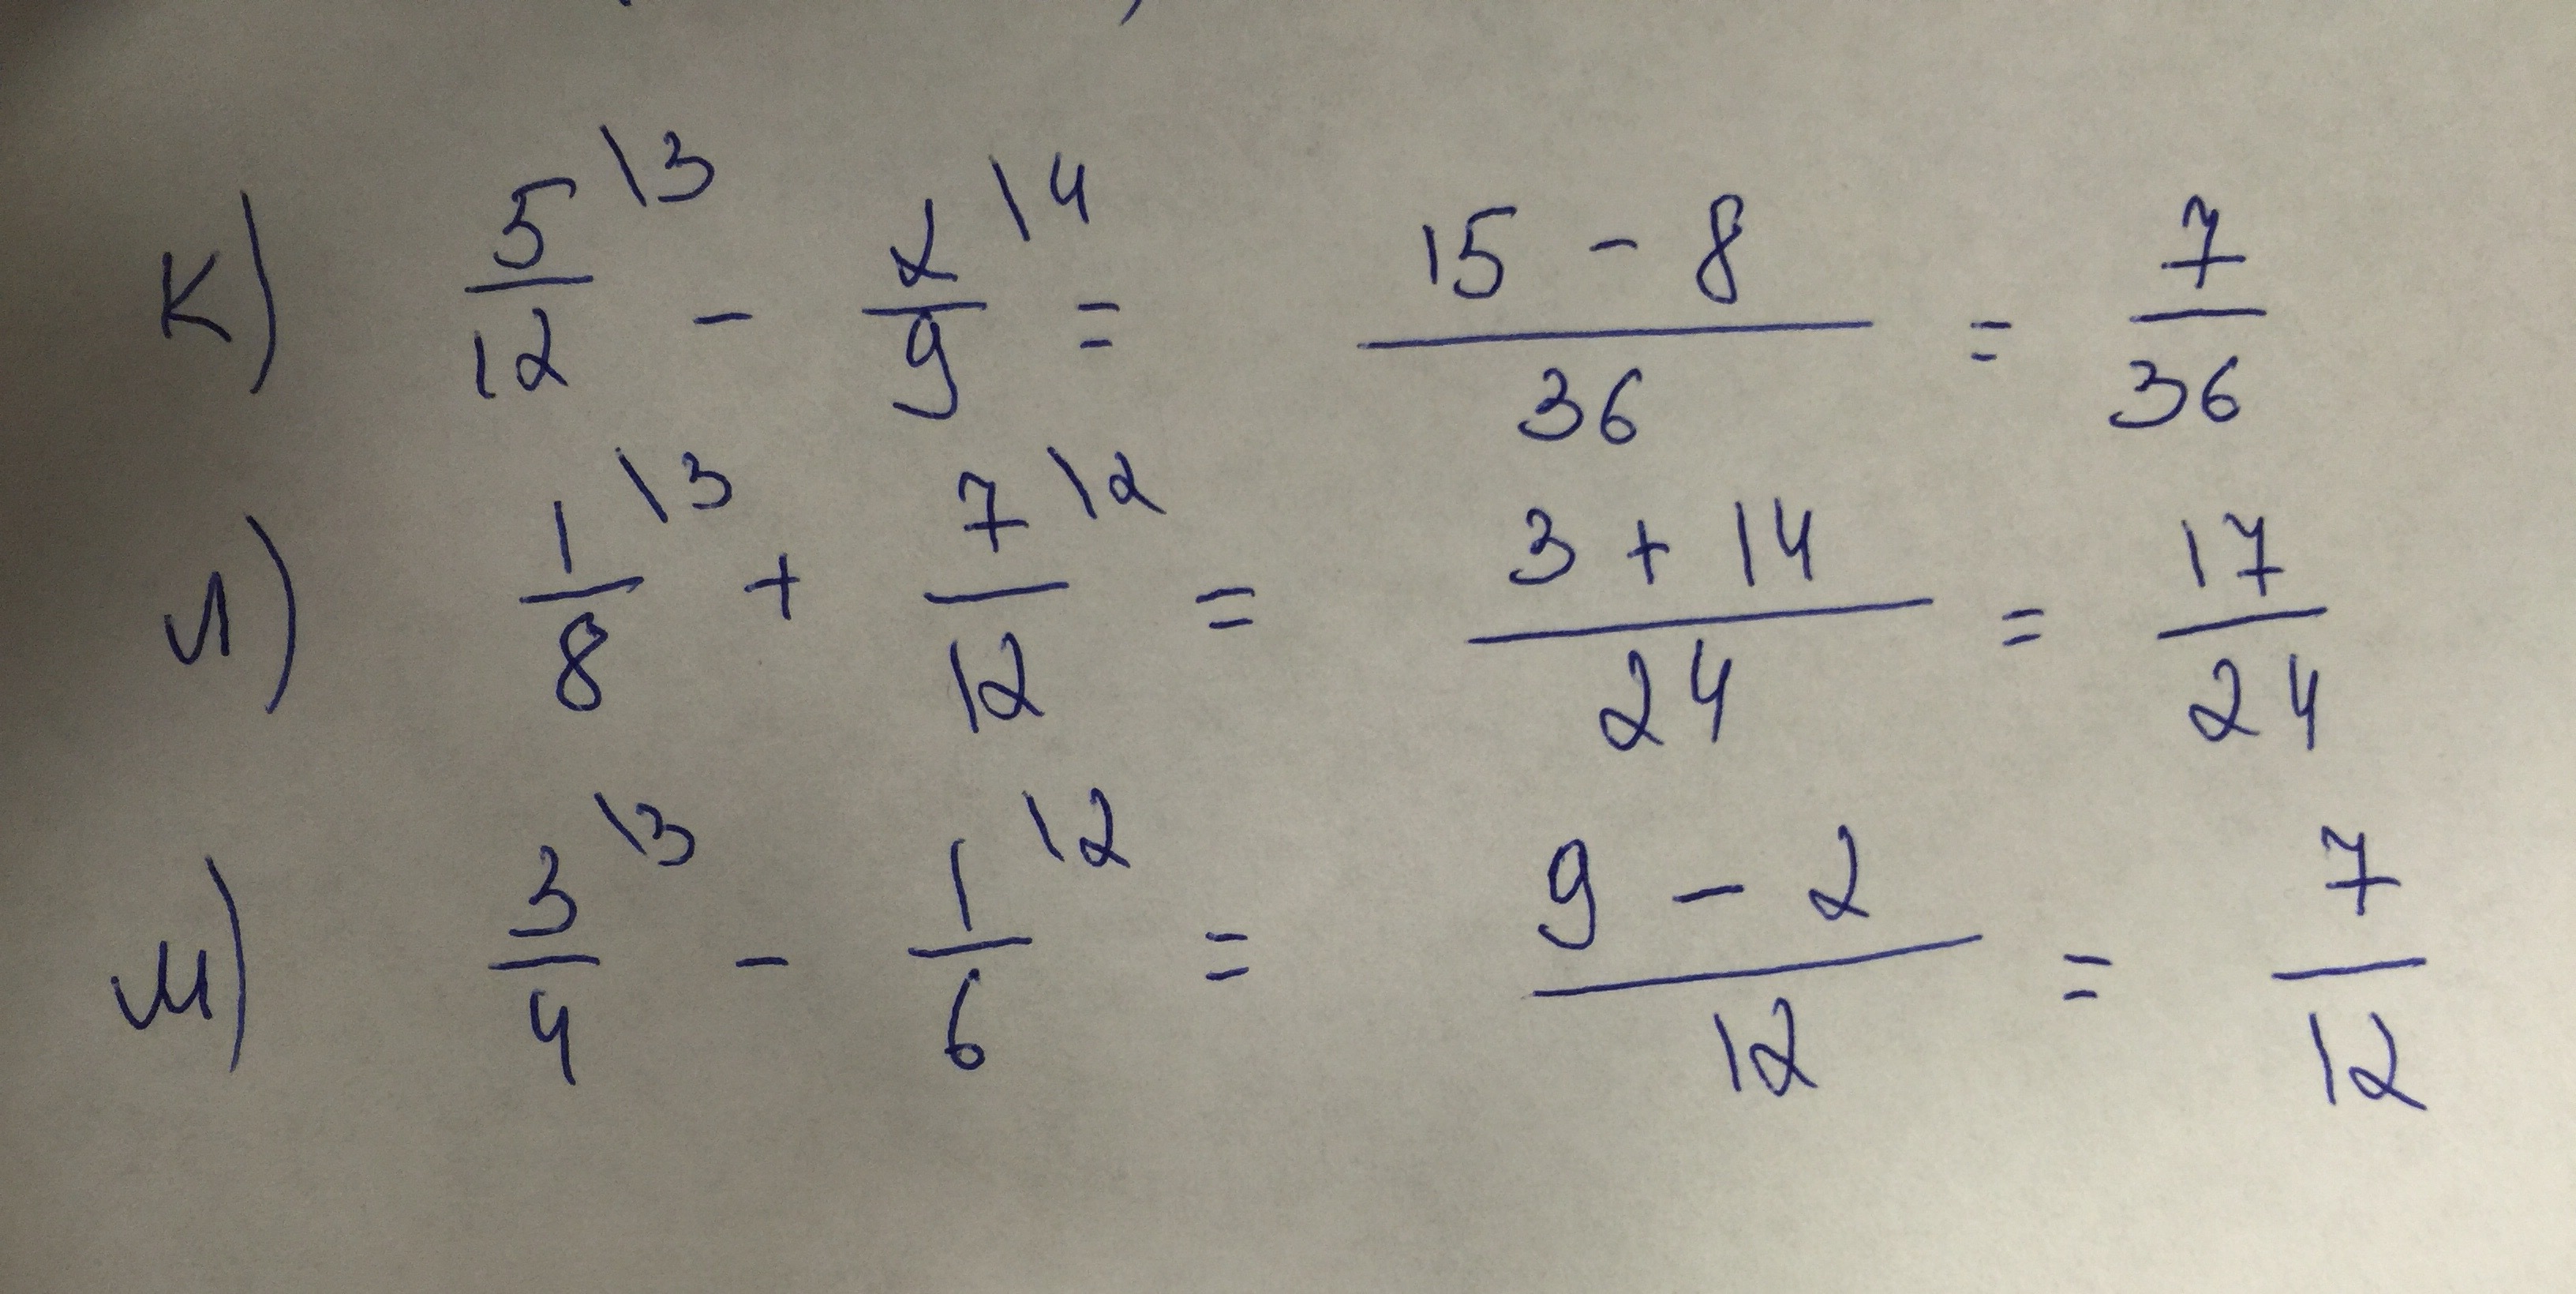 к) 5/12 \3 - 2/9 \4 = (15 - 8)/36 = 7/36
л) 1/8 \3 + 7/12 \2 = (3 + 14)/24 = 17/24
м) 3/4 \3 - 1/6 \2 = (9 - 2)/12 = 7/12